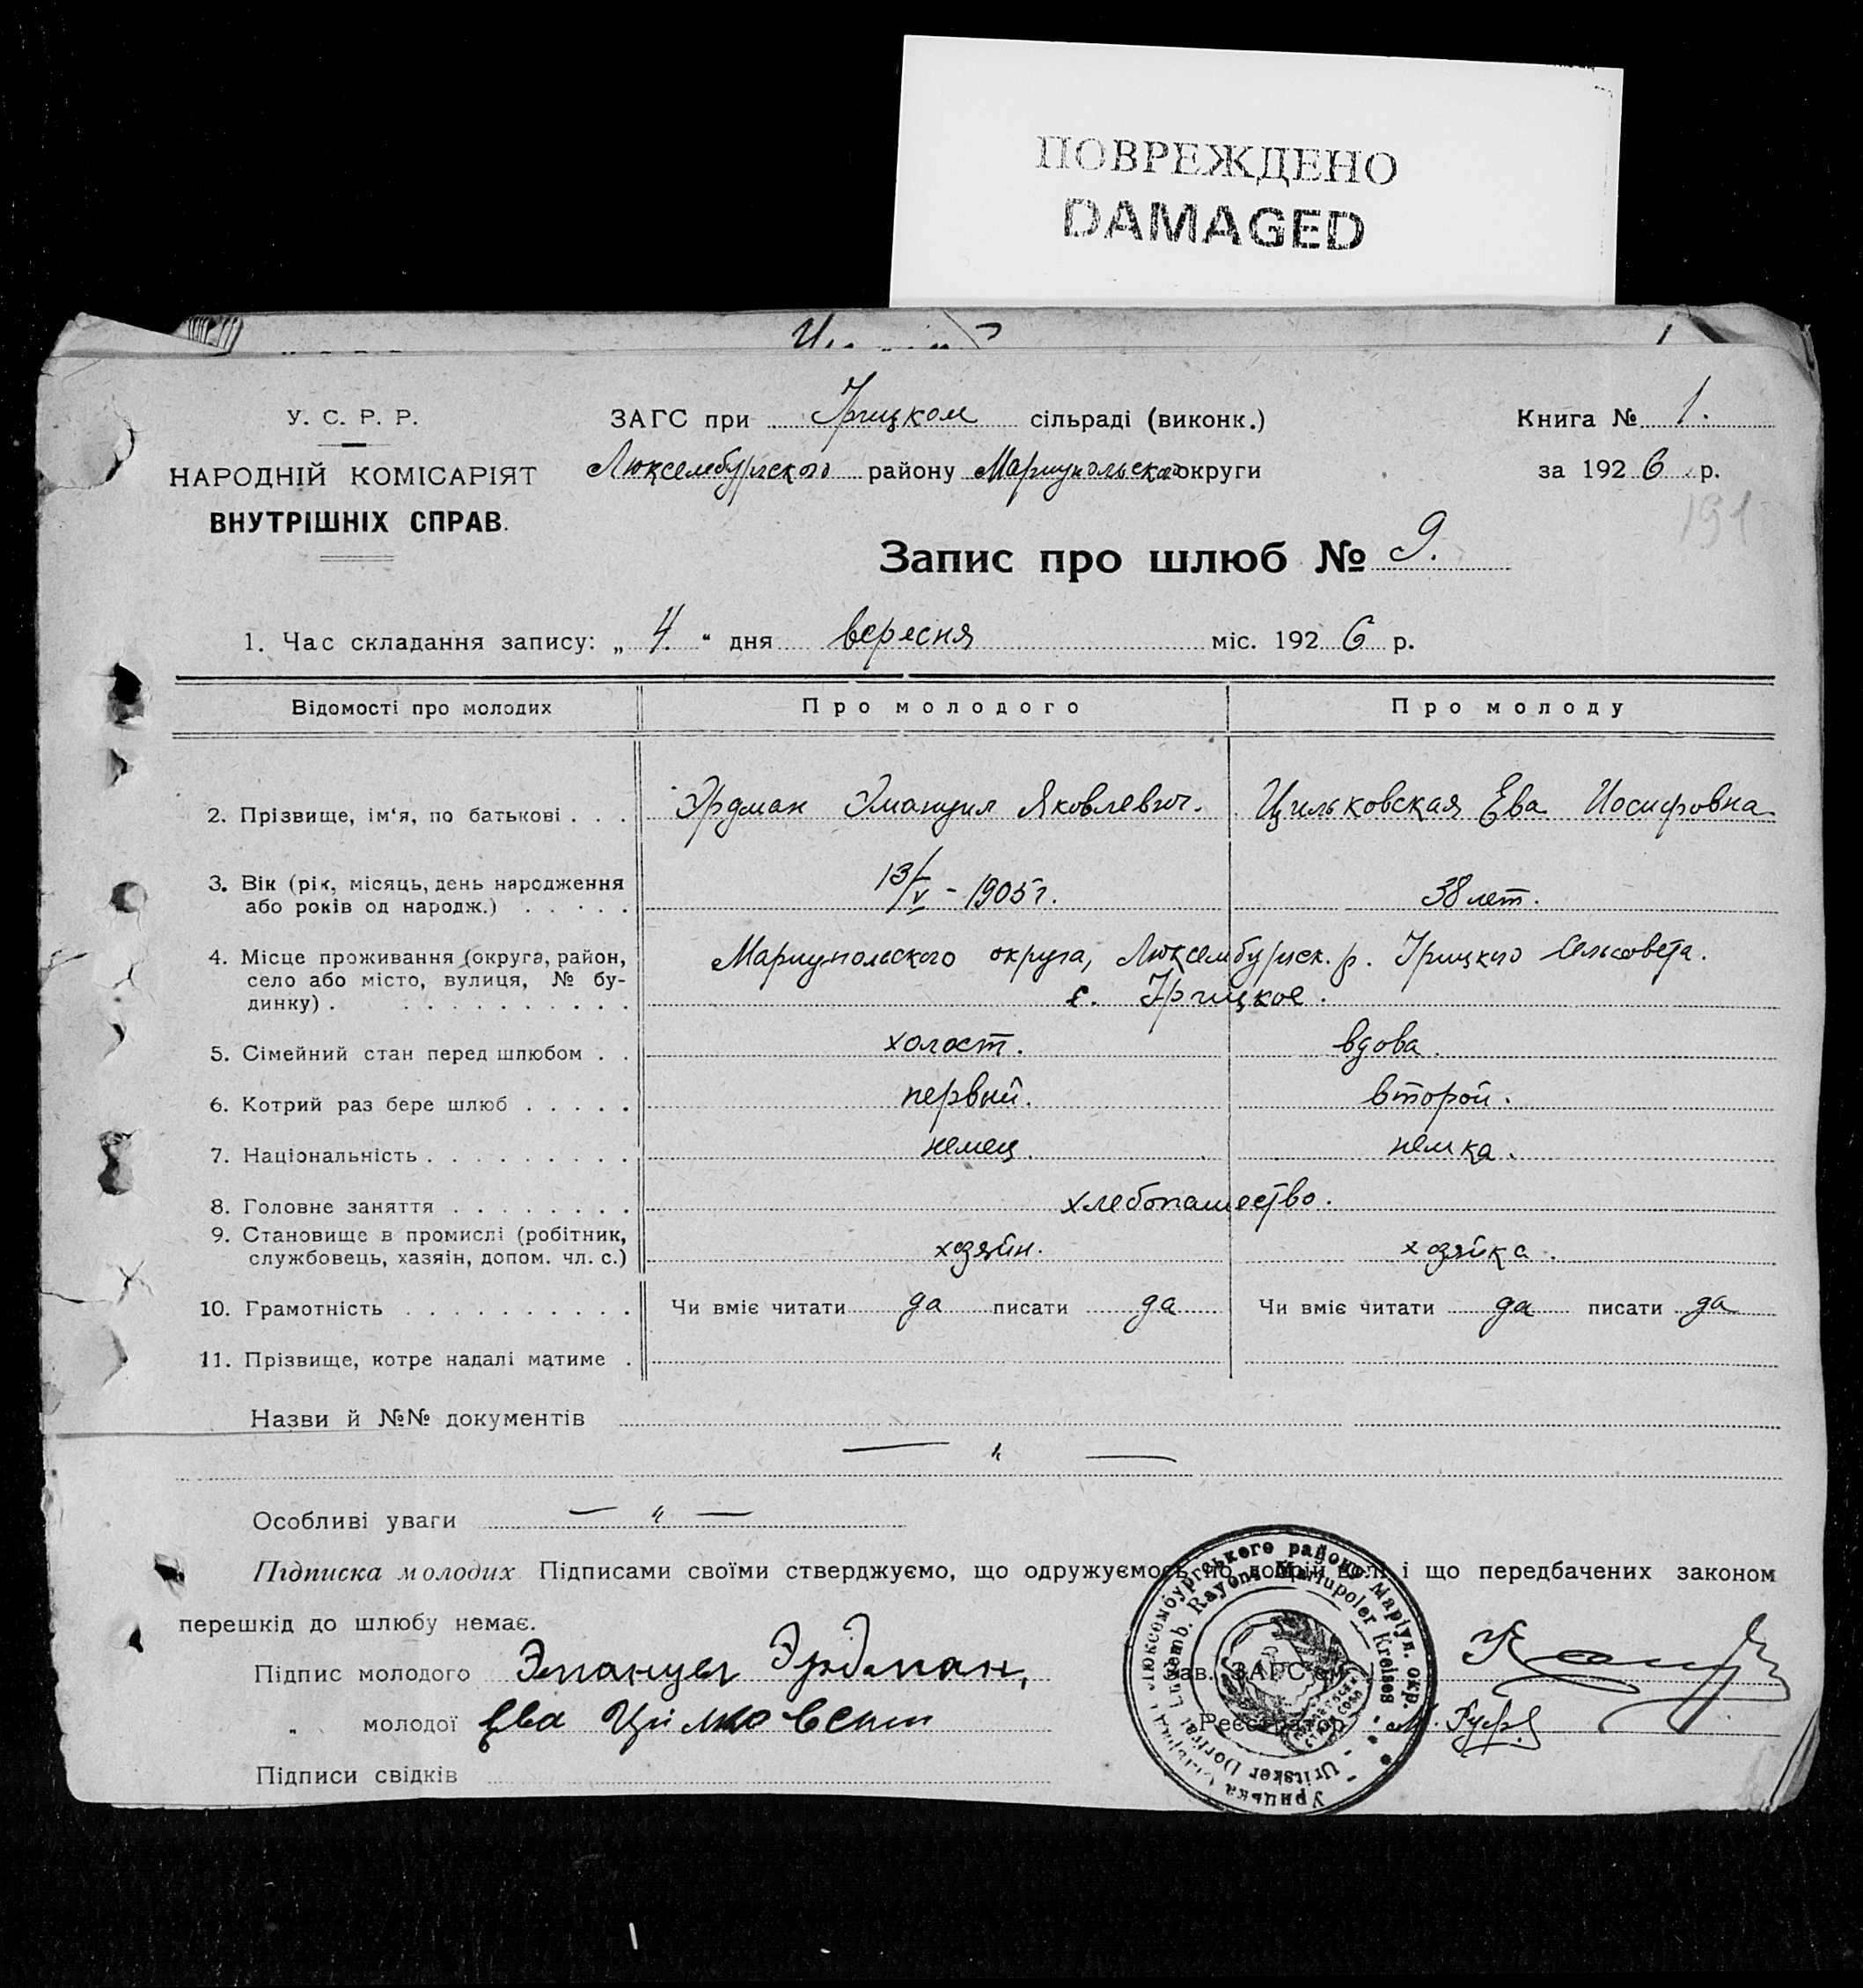 ПОВРЕЖДЕНО
DAMAGED
У. С. Р. Р.
НАРОДНІЙ КОМІСАРІЯТ
ВНУТРІШНІХ СПРАВ.
ЗАГС при Урицком сільраді (виконк.)
Люксембургского району Мариупольской округи
Книга № 1.
за 1926 р.
191
Запис про шлюб № 9.
1. Час складання запису: „4.“ дня вересня міс. 1926 р.
Відомості про молодих Про молодого Про молоду
2. Прізвище, ім‘я, по батькові . . . Эрдман Эмануил Яковлевич. Цильковская Ева Иосифовна
3. Вік (рік, місяць, день народження
або років од народж.) . . . . . 13/V - 1905 г. 38 лет.
4. Місце проживання (округа, район, Мариупольского округа, Люксембургск. р. Урицкого Сельсовета.
село або місто, вулиця, № бу-
динку) . . . . . . . . . . . с. Урицкое.
5. Сімейний стан перед шлюбом . . холост. вдова.
6. Котрий раз бере шлюб . . . . . первый. второй.
7. Національність . . . . . . . . . немец. немка.
8. Головне заняття . . . . . . . . хлебопашество.
9. Становище в промислі (робітник,
службовець, хазяін, допом. чл. с.) хозяин. хозяйка.
10. Грамотність . . . . . . . . . . Чи вміє читати да писати да Чи вміє читати да писати да
11. Прізвище, котре надалі матиме .
Назви й №№ документів
— „ —
Особливі уваги — „ —
Підписка молодих Підписами своїми стверджуємо, що одружуємось по добрій волі і що передбачених законом
перешкід до шлюбу немає.
Підпис молодого Эмануел Эрдман, Зав. ЗАГС'ом
„ молодої Ева Реєстратор
Підписи свідків
Люксембургського району Маріуп. окр.
Luxemb. Rayons Mariupoler Kreises
Урицька
Uritsker Dorfrat